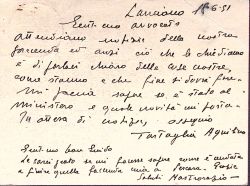 Lanciano 18-6-51
Gent.mo avvocato
attendiamo notizie della nostra
faccenda ed anzi ciò che le chiediamo
è di farci chiaro delle cose nostre,
come stanno e che fine si dovrà fare.
Mi faccia sapere se è stato al
ministero e quale novità mi porta.
In attesa di notizie, ossequio
Tartaglia
Gent.mo
Le sarei grato se mi facesse sapere come è andata
a finire quella faccenda mia a Pescara. Grazie
Saluti